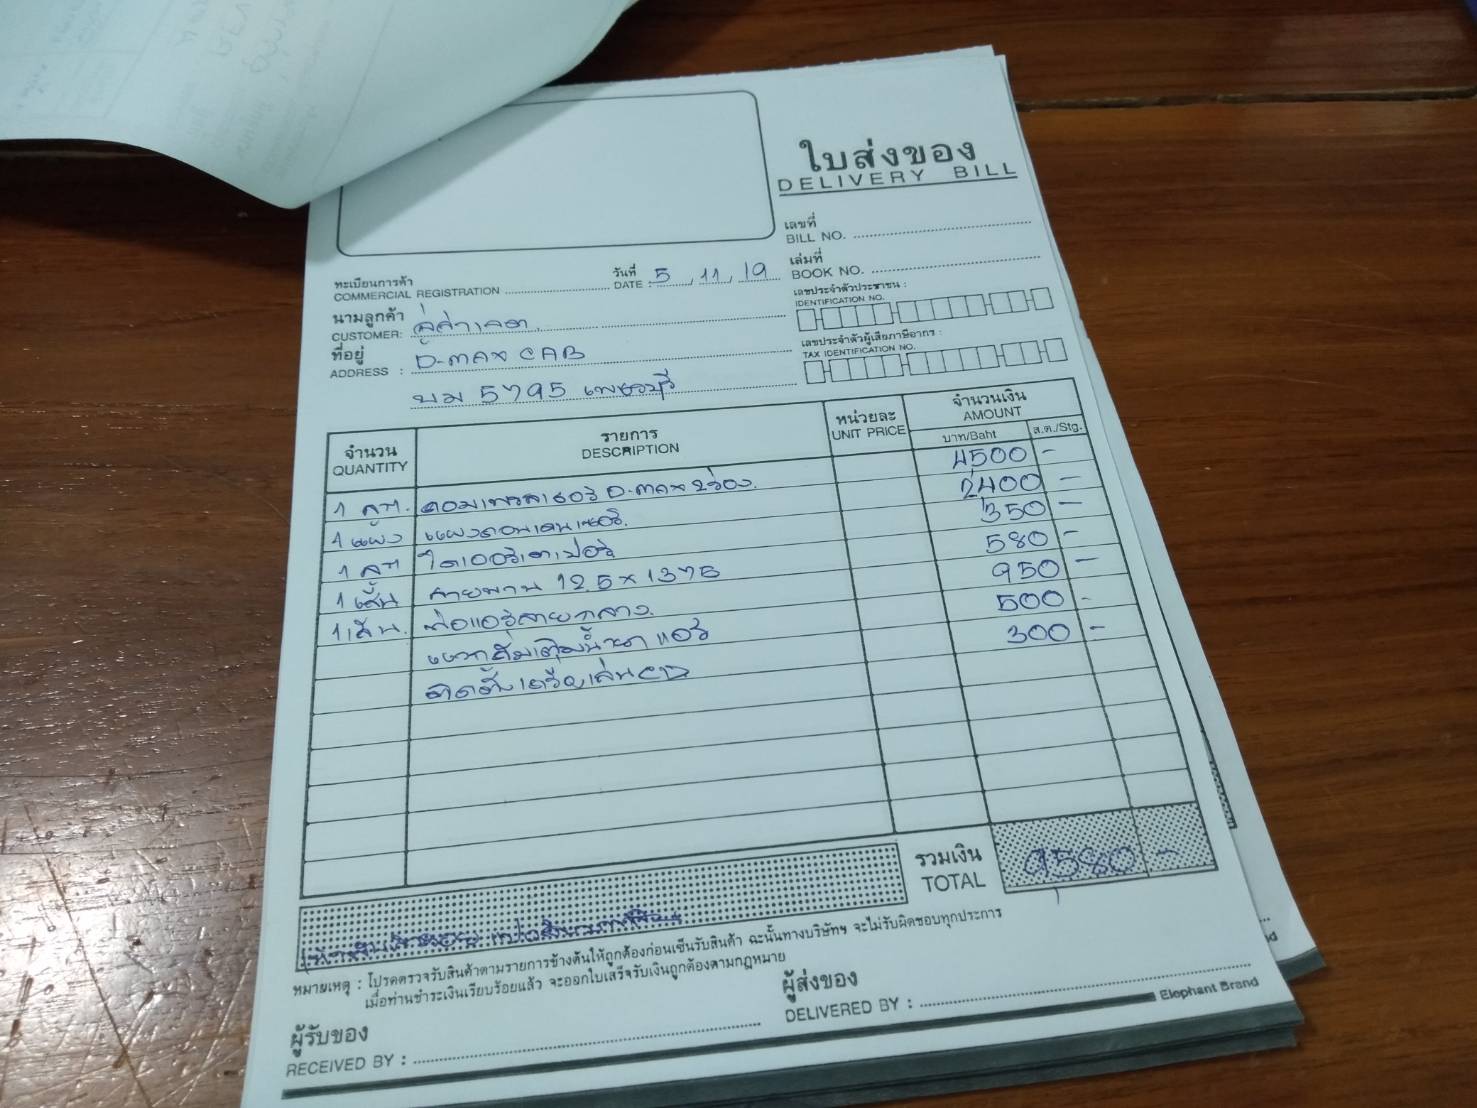 ใบส่งของ
DELIVERY BILL
เลขที่
BILL NO.
เล่มที่
BOOK NO.
ทะเบียนการค้า
COMMERCIAL REGISTRATION
วันที่
DATE : 5 / 11 / 19
เลขประจำตัวประชาชน :
IDENTIFICATION NO.
นามลูกค้า
CUSTOMER:
เลขประจำตัวผู้เสียภาษีอากร :
TAX IDENTIFICATION NO.
ที่อยู่
ADDRESS : D-max CAB
บม 5795 เพชรบุรี
จำนวน
QUANTITY
รายการ
DESCRIPTION
หน่วยละ
UNIT PRICE
จำนวนเงิน
AMOUNT
บาท/Baht
ส.ต./Stg.
1 ลูก. คอมเพรสเซอร์ D-max 2ร่อง. 4500 -
1 แผง แผงคอนเดนเซอร์. 2400 -
1 ลูก ไดเออร์ 350 -
1 เส้น สายพาน 12.5 x 1375 580 -
1 เส้น. ท่อแอร์สายกลาง. 950 -
น้ำยาแอร์ 500 -
ติดตั้งเครื่องเล่น CD 300 -
รวมเงิน
TOTAL
9580 -
หมายเหตุ : โปรดตรวจรับสินค้าตามรายการข้างต้นให้ถูกต้องก่อนเซ็นรับสินค้า ฉะนั้นทางบริษัทฯ จะไม่รับผิดชอบทุกประการ
เมื่อท่านชำระเงินเรียบร้อยแล้ว จะออกใบเสร็จรับเงินถูกต้องตามกฎหมาย
ผู้รับของ
RECEIVED BY :
ผู้ส่งของ
DELIVERED BY :
Elephant Brand